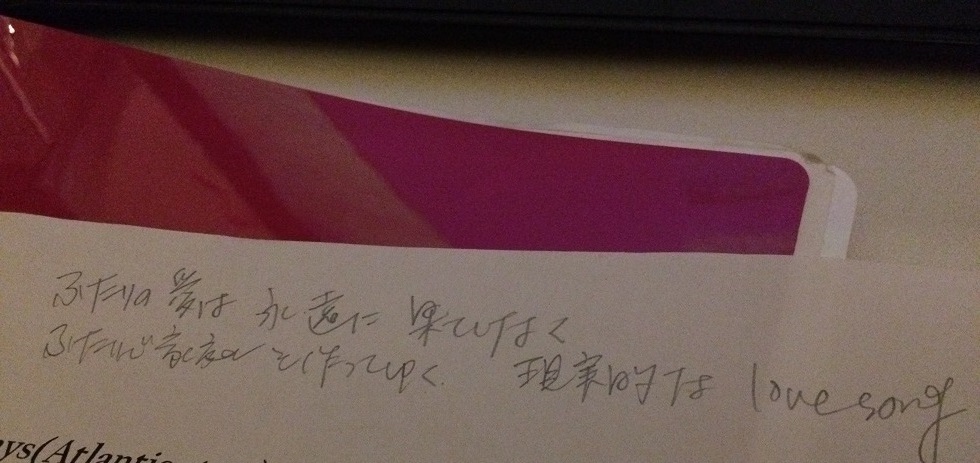 ふたりの夢は 永遠に 果てしなく
ふたりで を作ってゆく. 現実的な love song
ys(Atlantic